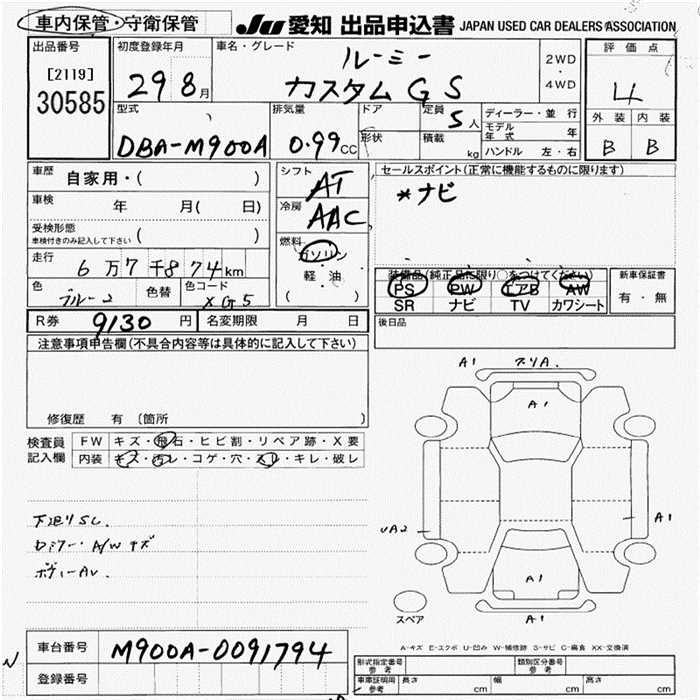 車内保管・守衛保管 JU 愛知 出品申込書 JAPAN USED CAR DEALERS ASSOCIATION
出品番号
[2119]
30585
初度登録年月
29 8月
車名・グレード
ルーミー
カスタム G S
2WD
・
4WD
評価点
4
外装 内装
B B
型式
DBA-M900A
排気量
0.99cc
ドア
形状
定員
5人
積載
kg
ディーラー・並行
モデル年式 年
ハンドル 左・右
車歴
自家用・( )
車検 年 月( 日)
受検形態
車検付きのみ記入して下さい ( )
走行
6万7千874km
色
ブルー2
色替
色コード
XG5
シフト
AT
冷房
AAC
燃料
ガソリン
・
軽油
( )
セールスポイント(正常に機能するものに限ります)
*ナビ
装備品(純正品に限り○をつけてください)
PS PW エアB AW
SR ナビ TV カワシート
新車保証書
有・無
R券 9130円 名変期限 月 日
後日品
注意事項申告欄(不具合内容等は具体的に記入して下さい)
修復歴 有 〔箇所 〕
検査員記入欄
FW キズ・飛石・ヒビ割・リペア跡・X要
内装 キズ・汚レ・コゲ・穴・スレ・キレ・破レ
下廻りSC.
ロミラー・A/Wキズ
ボディーAU.
A1 スリA.
A1
UA2
A1
A1
A1
スペア
A-キズ E-エクボ U-凹み W-補修跡 S-サビ C-腐食 XX-交換済
車台番号 M900A-0091794
登録番号
形式指定番号 参考
類別区分番号 参考
車庫証明用 参考
長さ cm 幅 cm 高さ cm